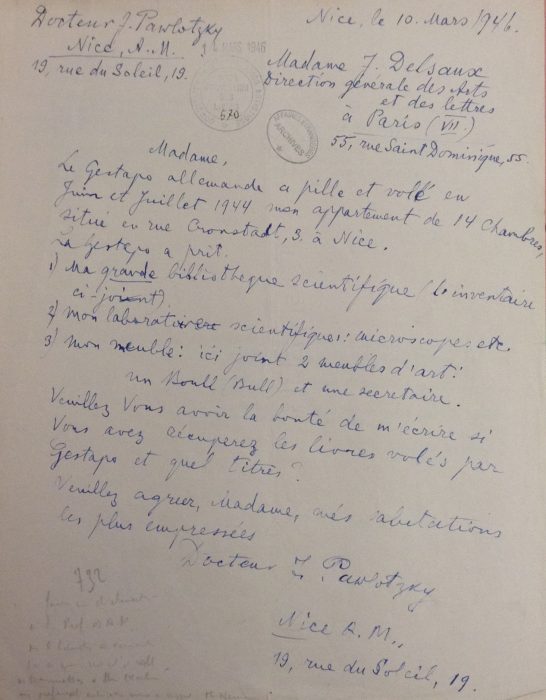 Docteur J. Pawlotzky
Nice, A.M.
19, rue du Soleil, 19.
MARS 1946
570
ARCHIVES
Nice, le 10. Mars 1946.
Madame J. Delsaux
Direction générale des Arts
et des lettres
à Paris (VII.)
55, rue Saint Dominique, 55.
Madame,
Le Gestapo allemande a pille et volé en
Juin et Juillet 1944 mon appartement de 14 chambres,
situé en rue Cronstadt, 3. à Nice.
La Gestapo a prit.
1) Ma grande bibliotheque scientifique (l'inventaire
ci-joient).
2) mon laboratoire scientifique: microscopes etc.
3) mon meuble: ici joint 2 meubles d'art:
un Boull (Bull) et une secretaire.
Veuillez Vous avoir la bonté de m'écrire si
Vous avez récuperez les livres volés par
Gestapo et quel titres?
Veuillez agrier, Madame, mes salutations
les plus empressées
Docteur J. Pawlotzky
Nice A.M.,
19, rue du Soleil, 19.
732